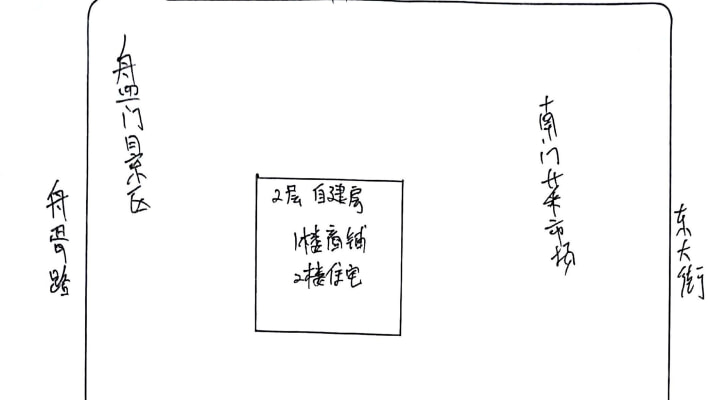 盘门景区
盘胥路
2层 自建房
1楼商铺
2楼住宅
南门菜市场
东大街